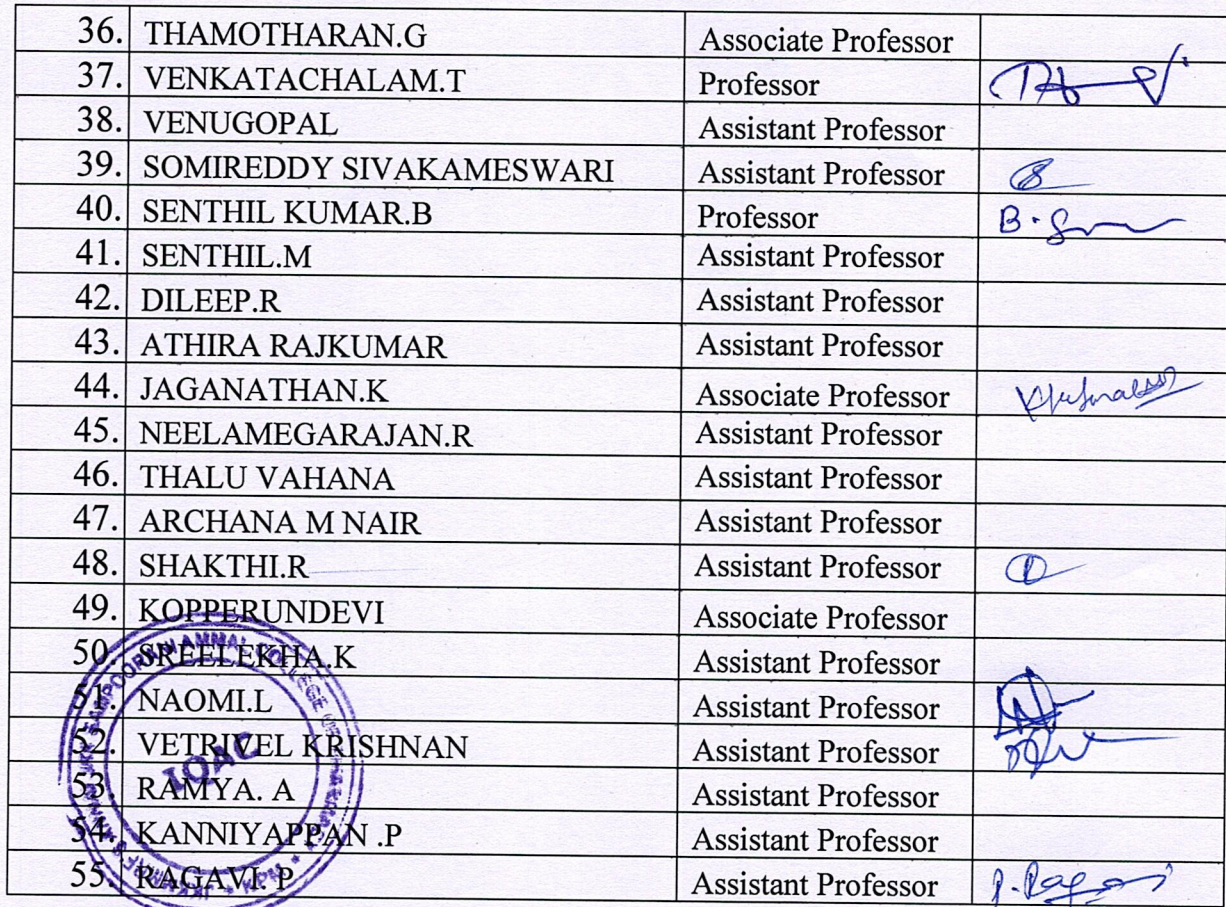 36. THAMOTHARAN.G Associate Professor
37. VENKATACHALAM.T Professor
38. VENUGOPAL Assistant Professor
39. SOMIREDDY SIVAKAMESWARI Assistant Professor
40. SENTHIL KUMAR.B Professor
41. SENTHIL.M Assistant Professor
42. DILEEP.R Assistant Professor
43. ATHIRA RAJKUMAR Assistant Professor
44. JAGANATHAN.K Associate Professor
45. NEELAMEGARAJAN.R Assistant Professor
46. THALU VAHANA Assistant Professor
47. ARCHANA M NAIR Assistant Professor
48. SHAKTHI.R Assistant Professor
49. KOPPERUNDEVI Associate Professor
50. SREELEKHA.K Assistant Professor
51. NAOMI.L Assistant Professor
52. VETRIVEL KRISHNAN Assistant Professor
53. RAMYA. A Assistant Professor
54. KANNIYAPPAN .P Assistant Professor
55. RAGAVI. P Assistant Professor P. Ragavi
SAMPOORANI AMMAL COLLEGE
IQAC